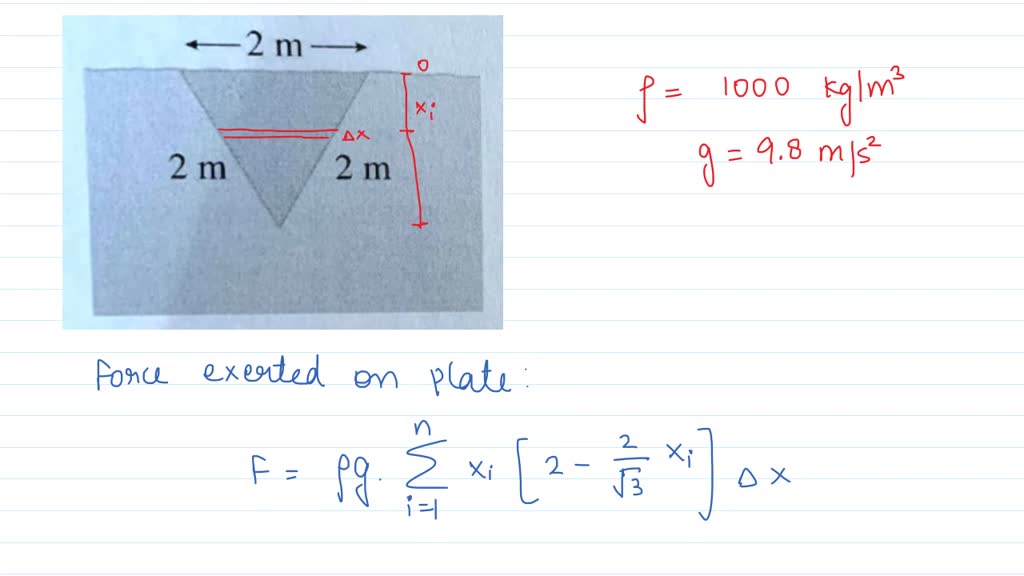 2 m
0
xi
Δx
2 m 2 m
ρ = 1000 kg/m³
g = 9.8 m/s²
Force exerted on plate:
F = ρg. ∑ⁿᵢ₌₁ xi [2 - 2/√3 xi] Δx